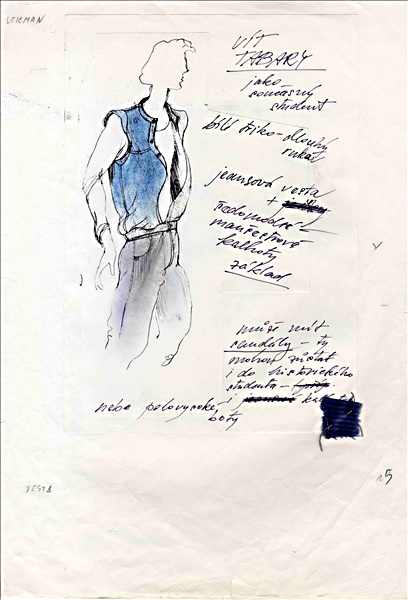 LEKMAN
VÍT
TABARY
jako
současný
student
bílé triko-dlouhý
rukáv
jeansová vesta
+
šedomodré -
manžestrové
kalhoty
základ
může mít
sandály - ty
mohou zůstat
i do historického
studenta -
i
nebo polovysoké
boty
VESTA
15